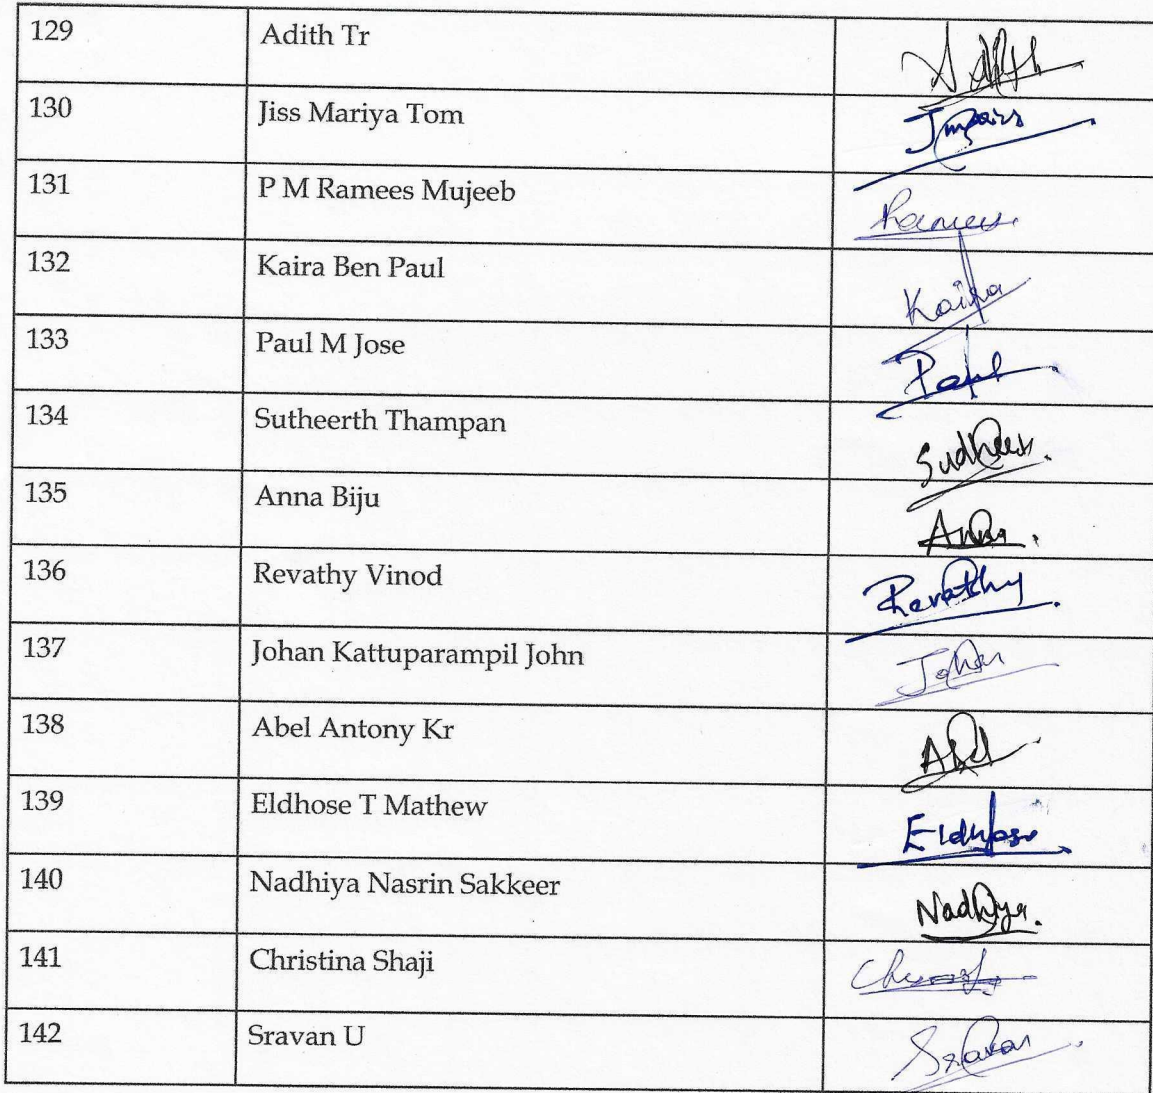 129 Adith Tr Adith
130 Jiss Mariya Tom
131 P M Ramees Mujeeb Ramees
132 Kaira Ben Paul Kaira
133 Paul M Jose Paul
134 Sutheerth Thampan
135 Anna Biju Anna
136 Revathy Vinod Revathy
137 Johan Kattuparampil John Johan
138 Abel Antony Kr Abel
139 Eldhose T Mathew Eldhose
140 Nadhiya Nasrin Sakkeer Nadhiya
141 Christina Shaji
142 Sravan U Sravan